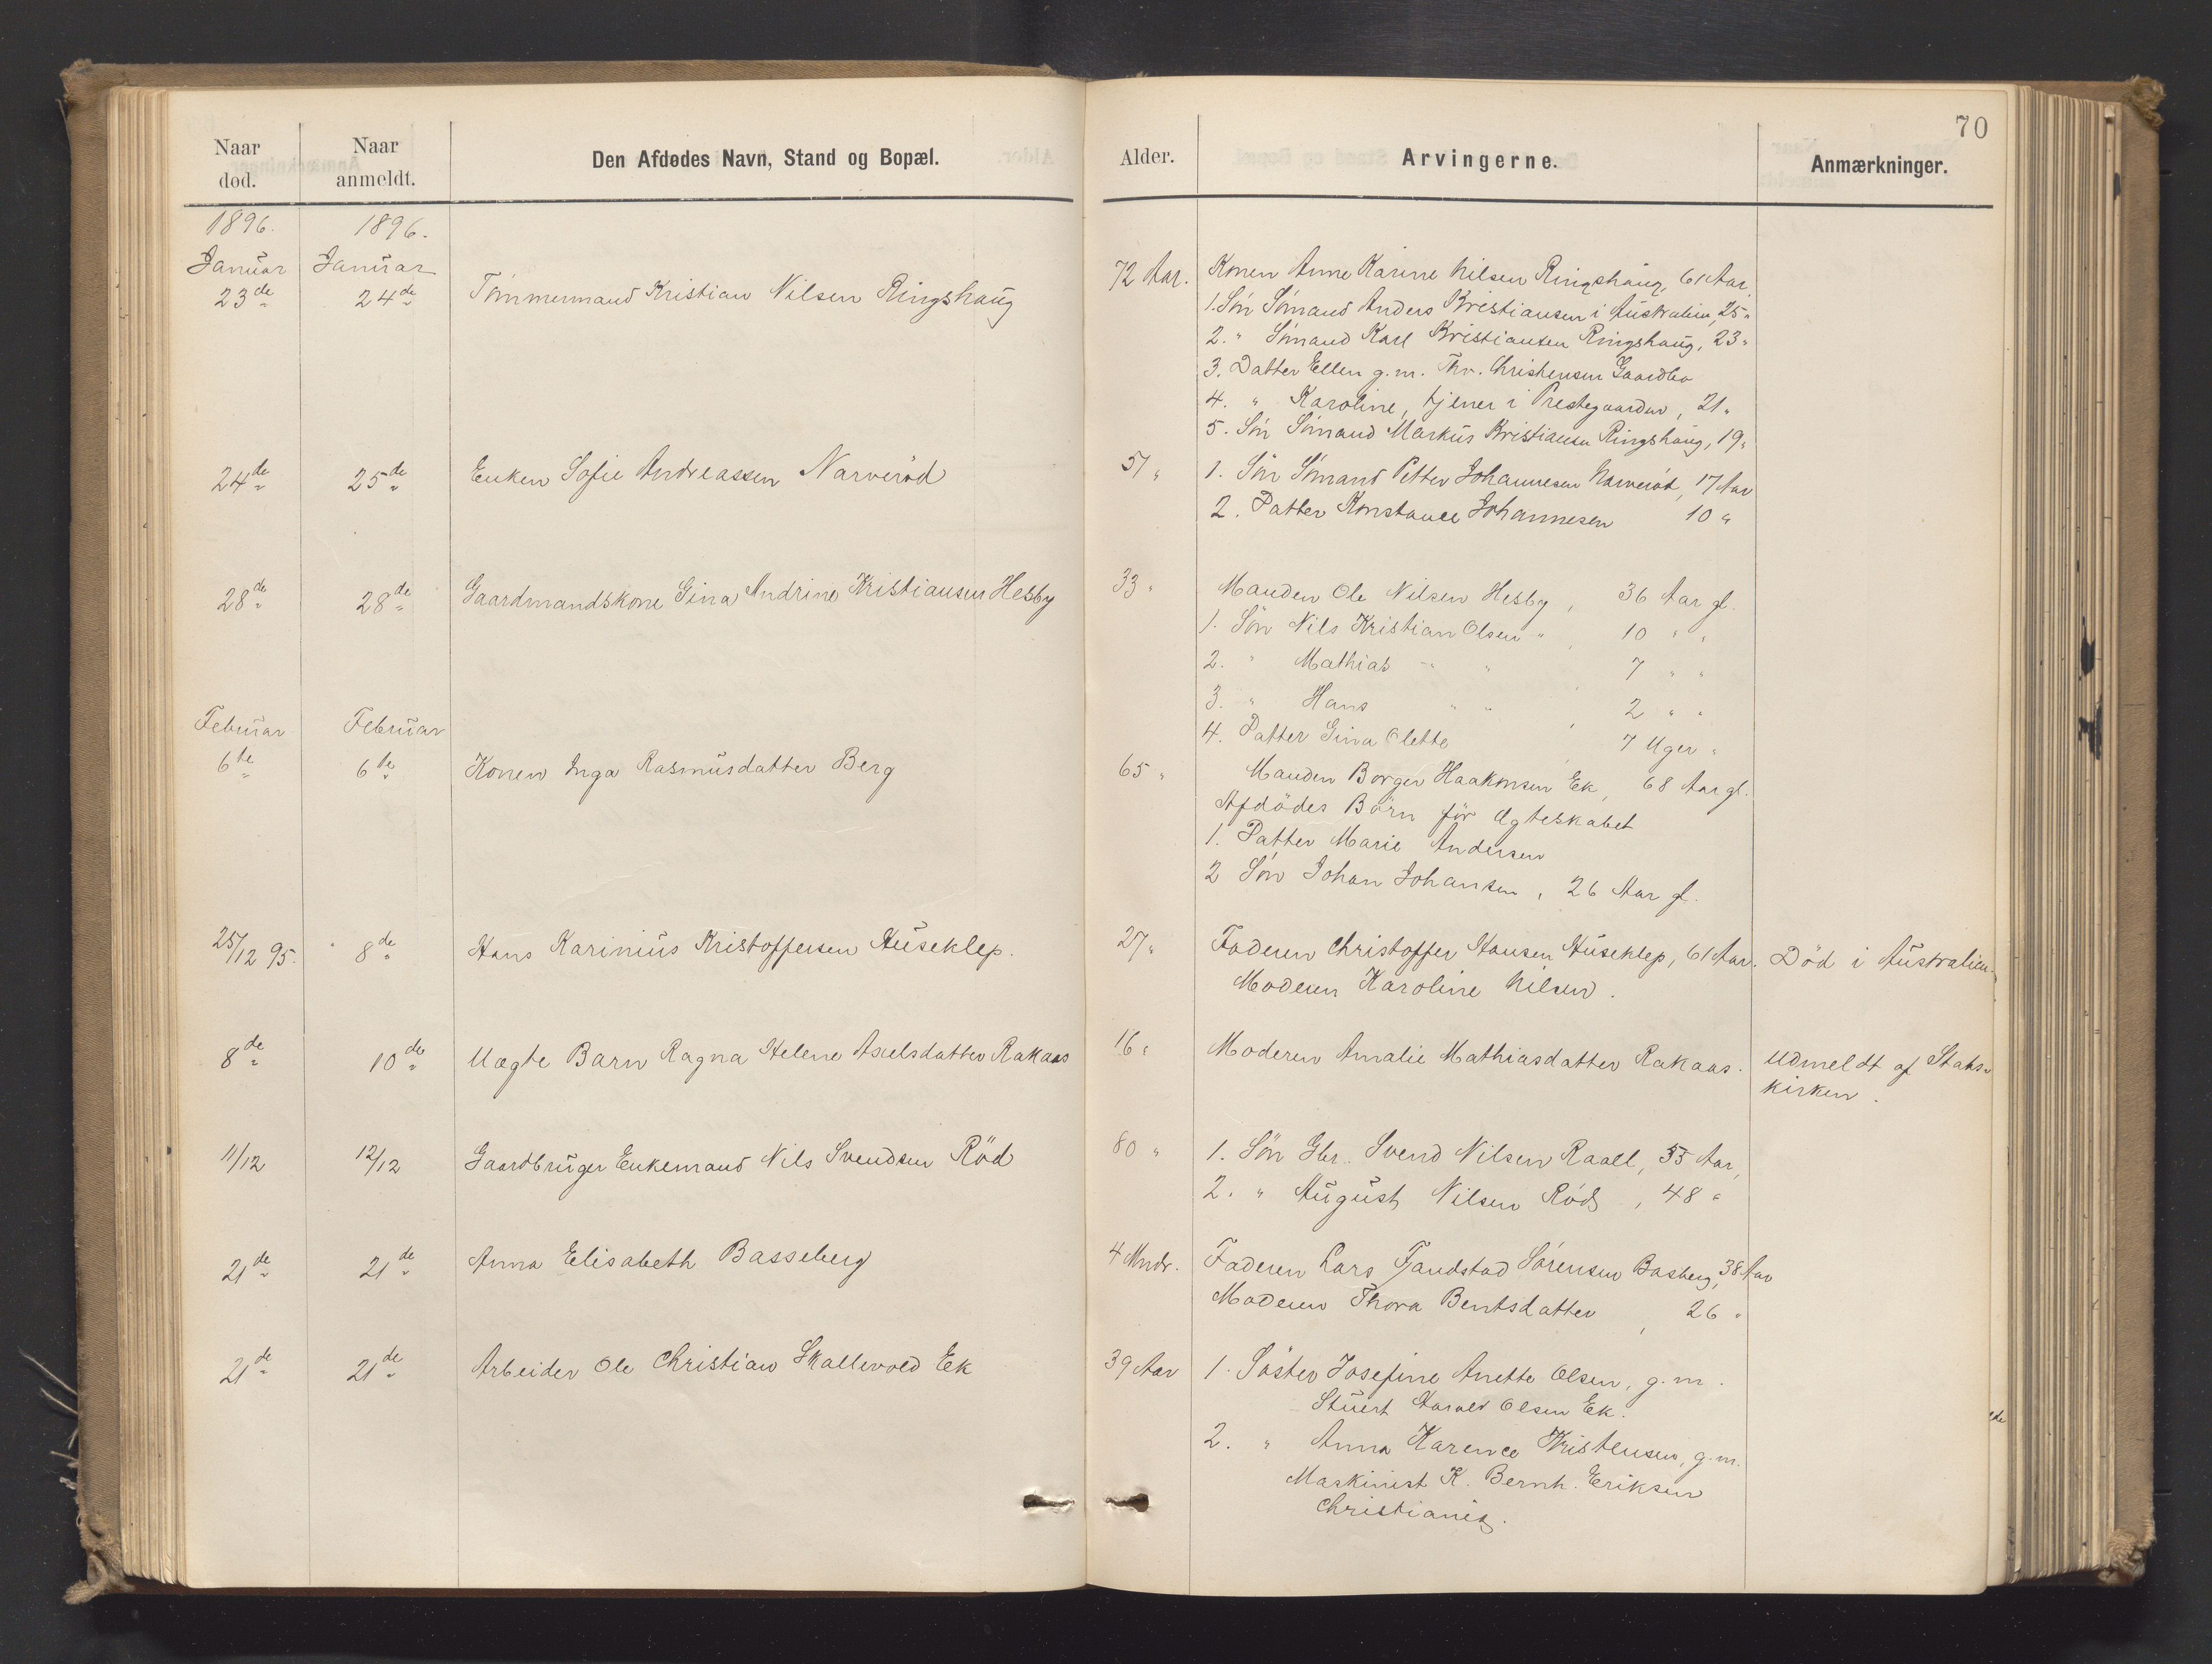 70
Naar død. Naar anmeldt. Den Afdødes Navn, Stand og Bopæl. Alder. Arvingerne. Anmærkninger.
1896. 1896.
Januar Januar
23de 24de Tømmermand Kristian Nilsen Ringshaug 72 Aar. Konen Anne Karine Nilsen Ringshaug, 61 Aar,
1. Søn Sømand Anders Kristiansen i Australien, 25 "
2. " Sømand Karl Kristiansen Ringshaug, 23 "
3. Datter Ellen g. m. Thv. Christensen Gaardbo
4. " Karoline, tjener i Prestegaarden, 21 "
5. Søn Sømand Markus Kristiansen Ringshaug, 19 "
24de 25de Enken Sofie Andreassen Narverød 51 " 1. Søn Sømand Petter Johannesen Narverød, 17 Aar
2. Datter Konstance Johannesen 10 "
28de 28de Gaardmandskone Gina Andrine Kristiansen Hesby 33 " Manden Ole Nilsen Hesby, 36 Aar gl.
1. Søn Nils Kristian Olsen " , 10 " "
2. " Mathias " " 7 " "
3. " Hans " " , 2 " "
4. Datter Gina Olette , 7 Uger "
Februar Februar
6te 6te Konen Inga Rasmusdatter Berg 65 " Manden Borger Haakonsen Ek, 68 Aar gl.
Afdødes Børn før Ægteskabet
1. Datter Marie Andersen
2 Søn Johan Johansen, 26 Aar gl.
25/12 95. 8de Hans Karinius Kristoffersen Huseklep. 27 " Faderen Christoffer Hansen Huseklep, 61 Aar. Død i Australien.
Moderen Karoline Nilsen.
8de 10de Uægte Barn Ragna Helene Axelsdatter Rakaas 16 " Moderen Amalie Mathiasdatter Rakaas. Udmeldt af Stats-
kirken.
11/12 12/12 Gaardbruger Enkemand Nils Svendsen Röd 80 " 1. Søn Gbr. Svend Nilsen Raael, 55 Aar,
2. " August Nilsen Röd, 48 "
21de 21de Anna Elisabeth Basseberg 4 Mndr. Faderen Lars Tjandstad Sørensen Basberg, 38 Aar
Moderen Thora Bentsdatter , 26 "
21de 21de Arbeider Ole Christian Skallevold Ek 39 Aar 1. Søster Josefine Anette Olsen, g. m.
Stuert Harald Olsen Ek.
2. " Anna Karence Kristensen, g. m.
Maskinist K. Bernh. Eriksen
Christiania.